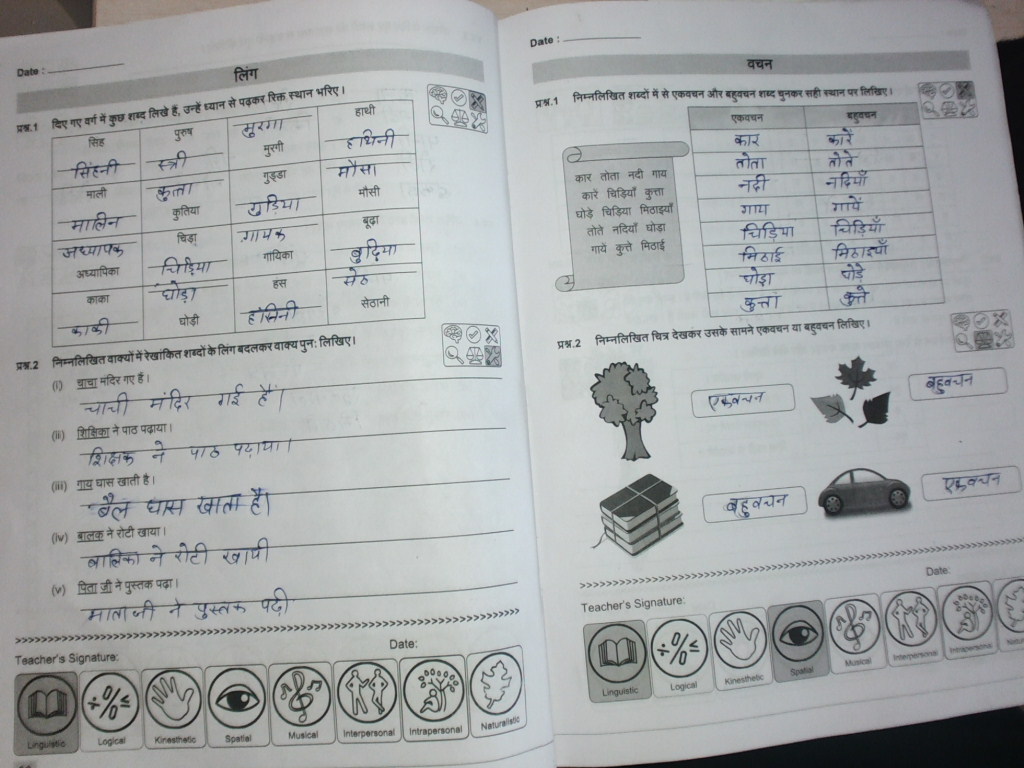 Date :
लिंग
प्रश्न.1 दिए गए वर्ग में कुछ शब्द लिखे हैं, उन्हें ध्यान से पढ़कर रिक्त स्थान भरिए।
सिंह पुरुष मुरगा हाथी
सिंहनी स्त्री मुरगी हथिनी
माली कुत्ता गुड्डा मौसा
मालिन कुतिया गुड़िया मौसी
अध्यापक चिड़ा गायक बूढ़ा
अध्यापिका चिड़िया गायिका बुढ़िया
काका घोड़ा हंस सेठ
काकी घोड़ी हंसिनी सेठानी
प्रश्न.2 निम्नलिखित वाक्यों में रेखांकित शब्दों के लिंग बदलकर वाक्य पुनः लिखिए।
(i) चाचा मंदिर गए हैं।
चाची मंदिर गई हैं।
(ii) शिक्षिका ने पाठ पढ़ाया।
शिक्षक ने पाठ पढ़ाया।
(iii) गाय घास खाती है।
बैल घास खाता है।
(iv) बालक ने रोटी खाया।
बालिका ने रोटी खायी
(v) पिता जी ने पुस्तक पढ़ा।
माताजी ने पुस्तक पढ़ी
Teacher's Signature: Date:
Linguistic Logical Kinesthetic Spatial Musical Interpersonal Intrapersonal Naturalistic
Date :
वचन
प्रश्न.1 निम्नलिखित शब्दों में से एकवचन और बहुवचन शब्द चुनकर सही स्थान पर लिखिए।
कार तोता नदी गाय
कारें चिड़ियाँ कुत्ता
घोड़े चिड़िया मिठाइयाँ
तोते नदियाँ घोड़ा
गायें कुत्ते मिठाई
एकवचन बहुवचन
कार कारें
तोता तोते
नदी नदियाँ
गाय गायें
चिड़िया चिड़ियाँ
मिठाई मिठाइयाँ
घोड़ा घोडे
कुत्ता कुत्ते
प्रश्न.2 निम्नलिखित चित्र देखकर उसके सामने एकवचन या बहुवचन लिखिए।
एकवचन बहुवचन
बहुवचन एकवचन
Teacher's Signature: Date:
Linguistic Logical Kinesthetic Spatial Musical Interpersonal Intrapersonal